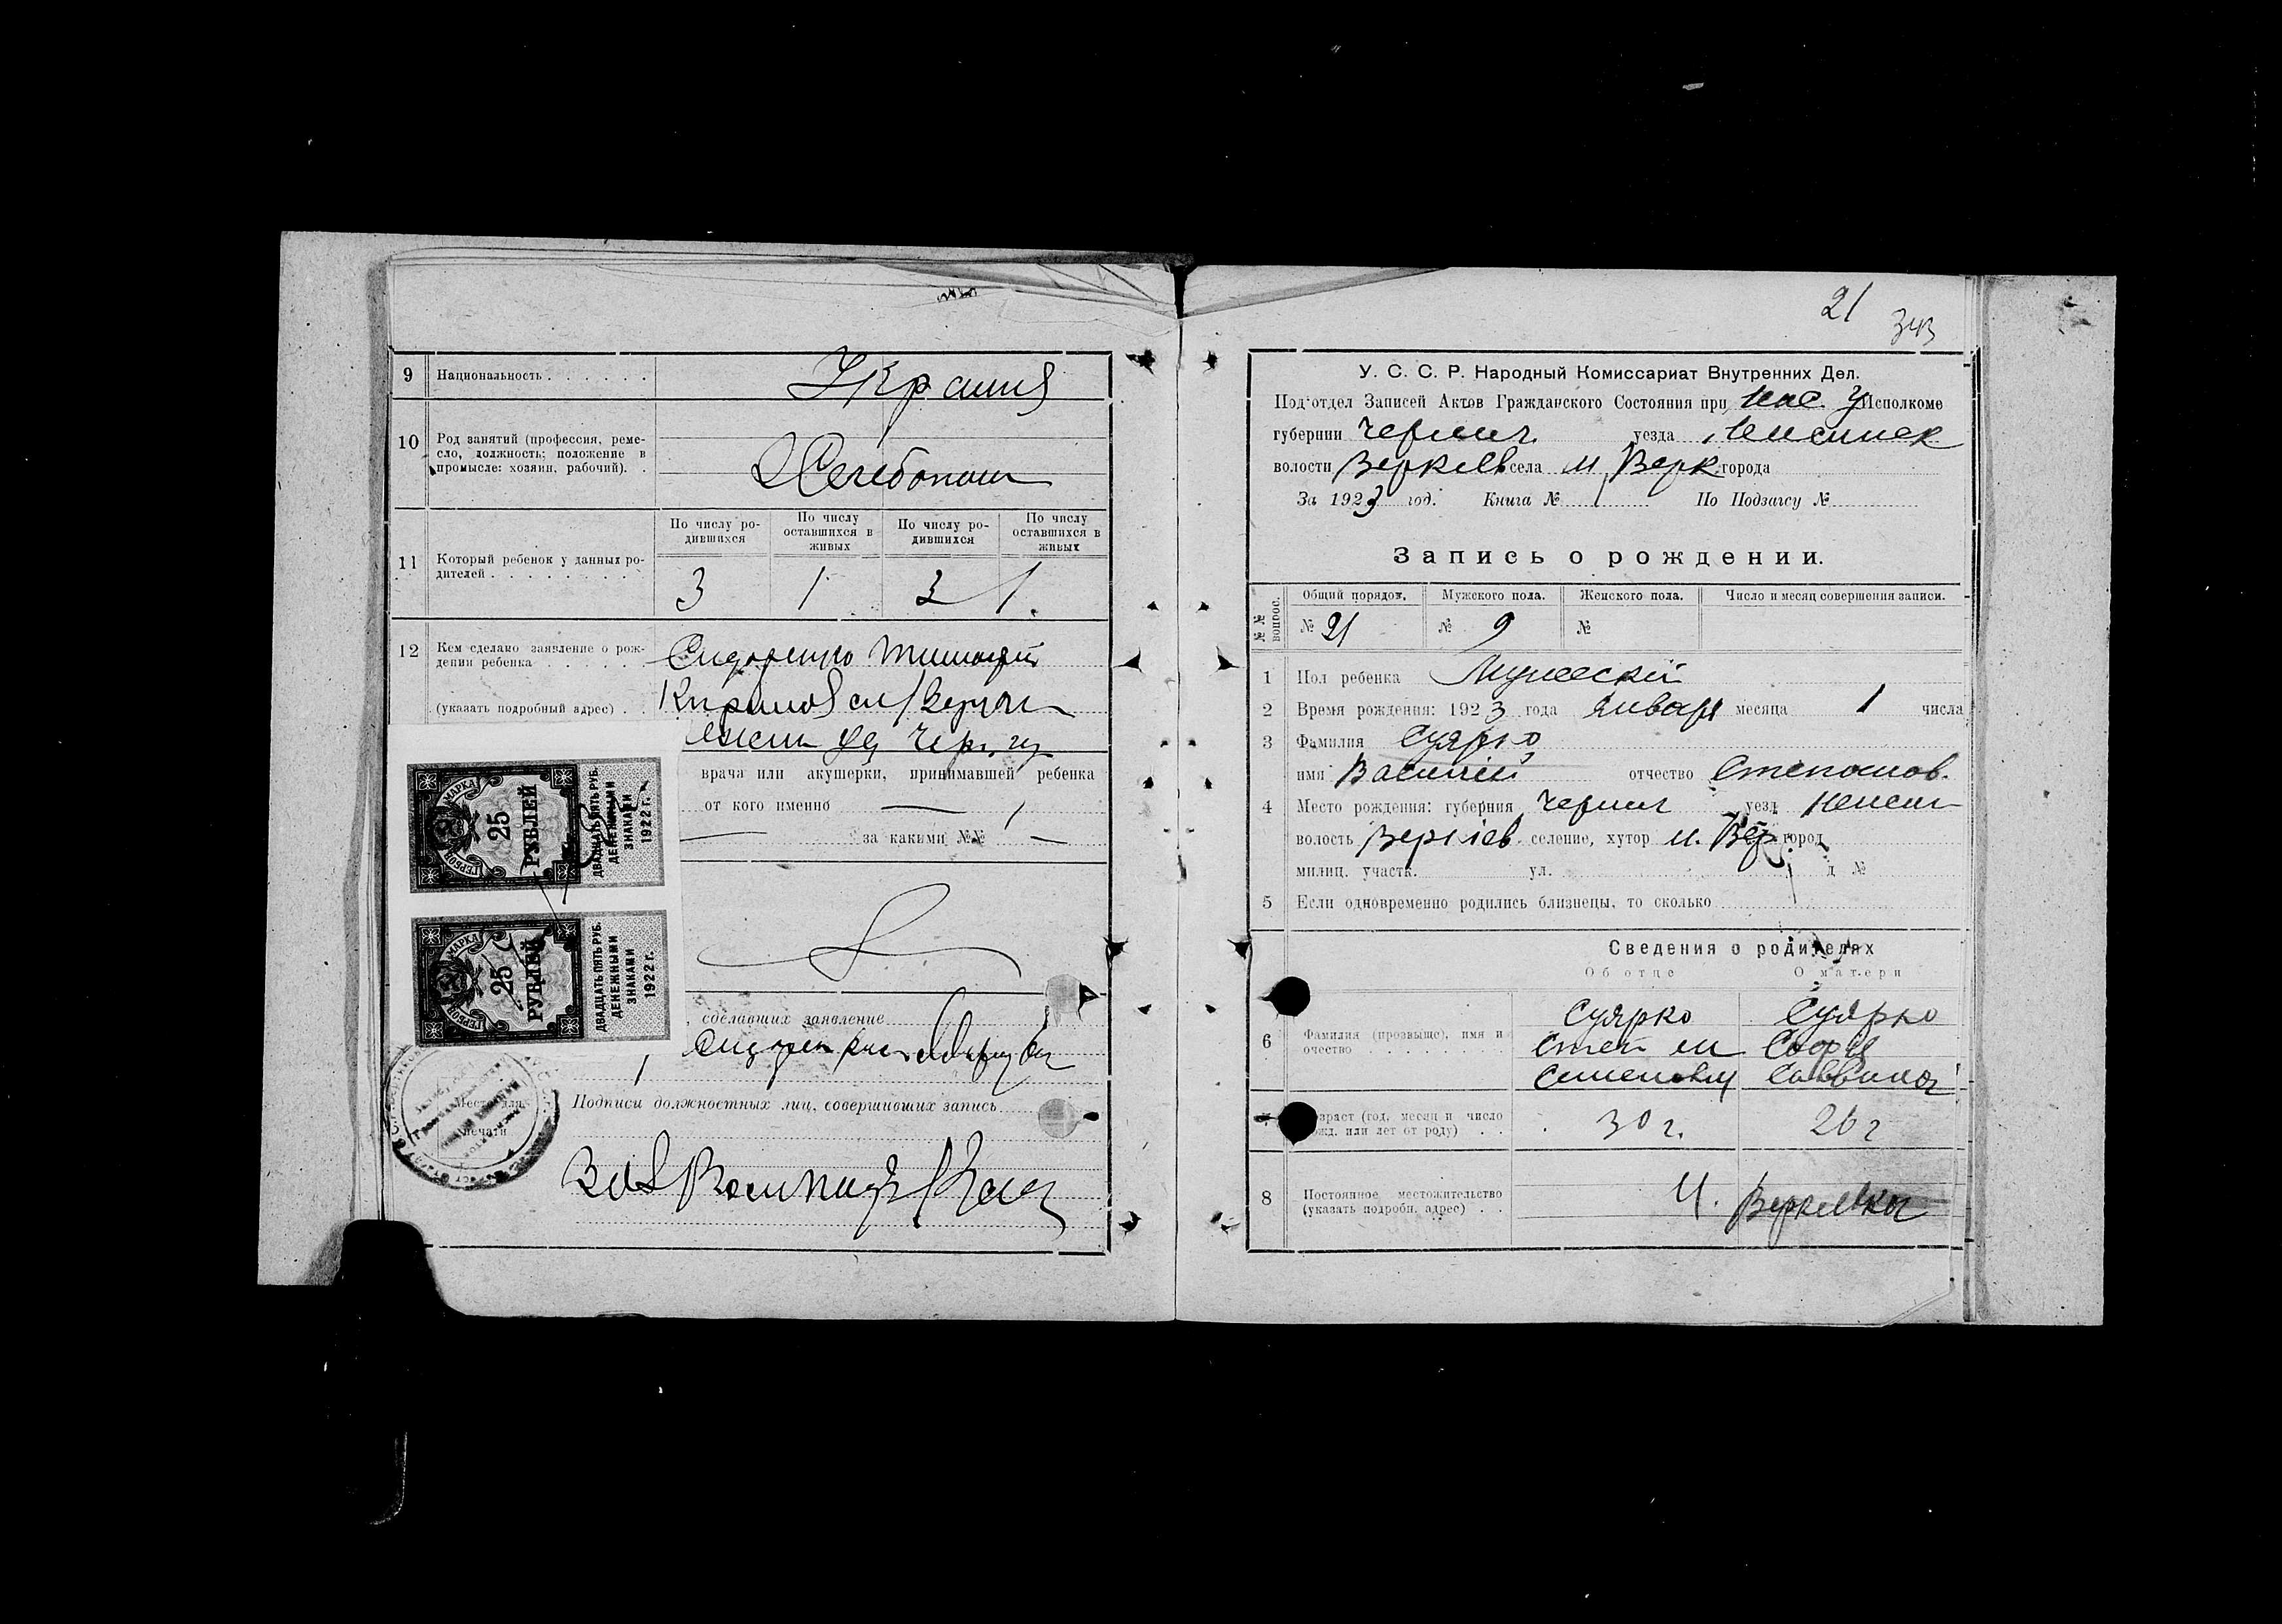 9 Национальность . . . . . .
Украина
10 Род занятий (профессия, реме-
сло, должность; положение в
промысле: хозяин, рабочий). .
Хлебопаш
11 Который ребенок у данных ро-
дителей . . . . . . . . .
По числу ро-
дившихся
По числу
оставшихся в
живых
По числу ро-
дившихся
По числу
оставшихся в
живых
3 1 3 1
12 Кем сделано заявление о рож-
дении ребенка . . . . .
Сидоренко
(указать подробный адрес) . .
уез Черн. гу
врача или акушерки, принимавшей ребенка
от кого именно
за какими №№
ГЕРБОВ МАРКА
25
РУБЛЕЙ
ДВАДЦАТЬ ПЯТЬ РУБ.
ДЕНЕЖНЫМИ
ЗНАКАМИ
1922 г.
ГЕРБОВ МАРКА
25
РУБЛЕЙ
ДВАДЦАТЬ ПЯТЬ РУБ.
ДЕНЕЖНЫМИ
ЗНАКАМИ
1922 г.
сделавших заявление
печати
Подписи должностных лиц, совершивших запись
21
343
У. С. С. Р. Народный Комиссариат Внутренних Дел.
Под'отдел Записей Актов Гражданского Состояния при Исполкоме
губернии Чернич. уезда
волости Веркіев села м. Верк. города
За 1923 год. Книга № 1 По Подзагсу №
Запись о рождении.
№№ вопрос.
Общий порядок. Мужского пола. Женского пола. Число и месяц совершения записи.
№ 21 № 9 №
1 Пол ребенка Мужескій
2 Время рождения: 1923 года Января месяца 1 числа
3 Фамилия Суярко
имя Василій отчество Степанов.
4 Место рождения: губерния Чернич уезд Нежин
волость Веркіев. селение, хутор м. Вер город
милиц. участк. ул. д №
5 Если одновременно родились близнецы, то сколько
Сведения о родителях
Об отце О матери
6 Фамилия (прозвыще), имя и
очество . . . . . . . . .
Суярко Суярко
Степан Софія
Семенович Саввина
возраст (год, месяц и число
рожд. или лет от роду) . .
30 г. 26 г
8 Постоянное местожительство
(указать подробн. адрес) . .
М. Веркіевка